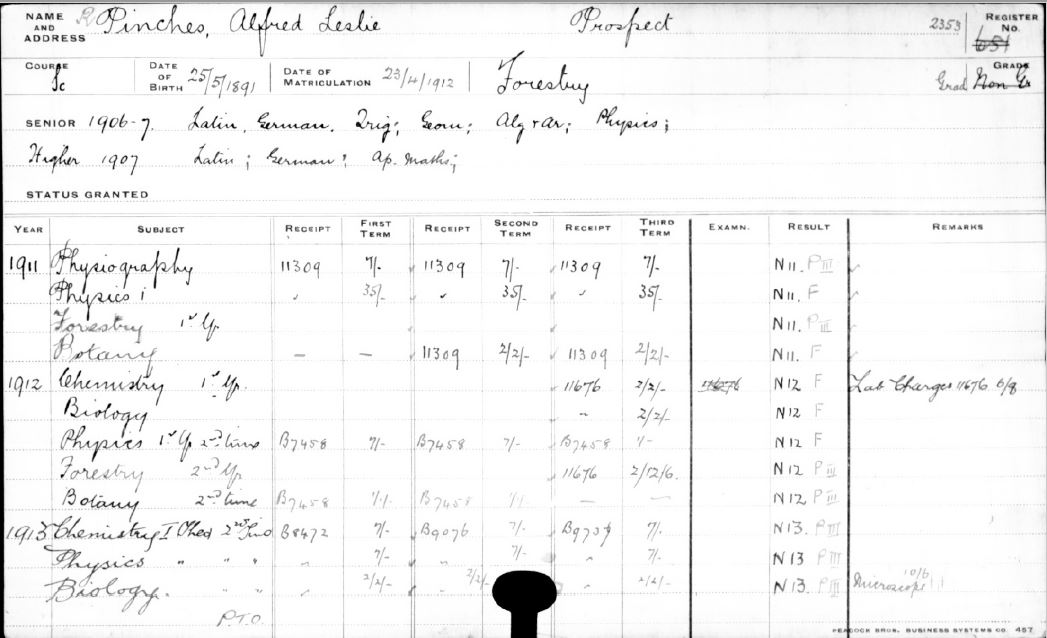 NAME AND ADDRESS Pinches, Alfred Leslie Prospect 2353 REGISTER No. 651
COURSE Sc DATE OF BIRTH 25/5/1891 DATE OF MATRICULATION 23/4/1912 Forestry Grad GRADE Non Gr
SENIOR 1906-7. Latin, German, Trig; Geom; Alg & Ar; Physics;
Higher 1907 Latin; German; Ap. Maths;
STATUS GRANTED
YEAR SUBJECT RECEIPT FIRST TERM RECEIPT SECOND TERM RECEIPT THIRD TERM EXAMN. RESULT REMARKS
1911 Physiography 11309 7/- 11309 7/- 11309 7/- N11. P III
Physics I " 35/- " 35/- " 35/- N11. F
Forestry 1st Yr N11. P III
Botany — — 11309 2/2/- 11309 2/2/- N11. F
1912 Chemistry 1st Yr 11676 2/2/- 11676 N12 F Lab Charges 11676 6/8
Biology " 2/2/- N12 F
Physics 1st Yr 2nd time B7458 7/- B7458 7/- B7458 N12 F
Forestry 2nd Yr 11676 2/12/6. N12 P III
Botany 2nd time B7458 1/1/- B7458 1/1/- — — N12 P III
1913 Chemistry I 2nd B8472 7/- B9076 7/- 7/- N13. P III
Physics " " " " 7/- " 7/- " 7/- N13 P III
Biology. " " " 2/2/- 2/2/- " 2/2/- N13. P III Microscope 10/6
P.T.O.
PEACOCK BROS. BUSINESS SYSTEMS CO. 457